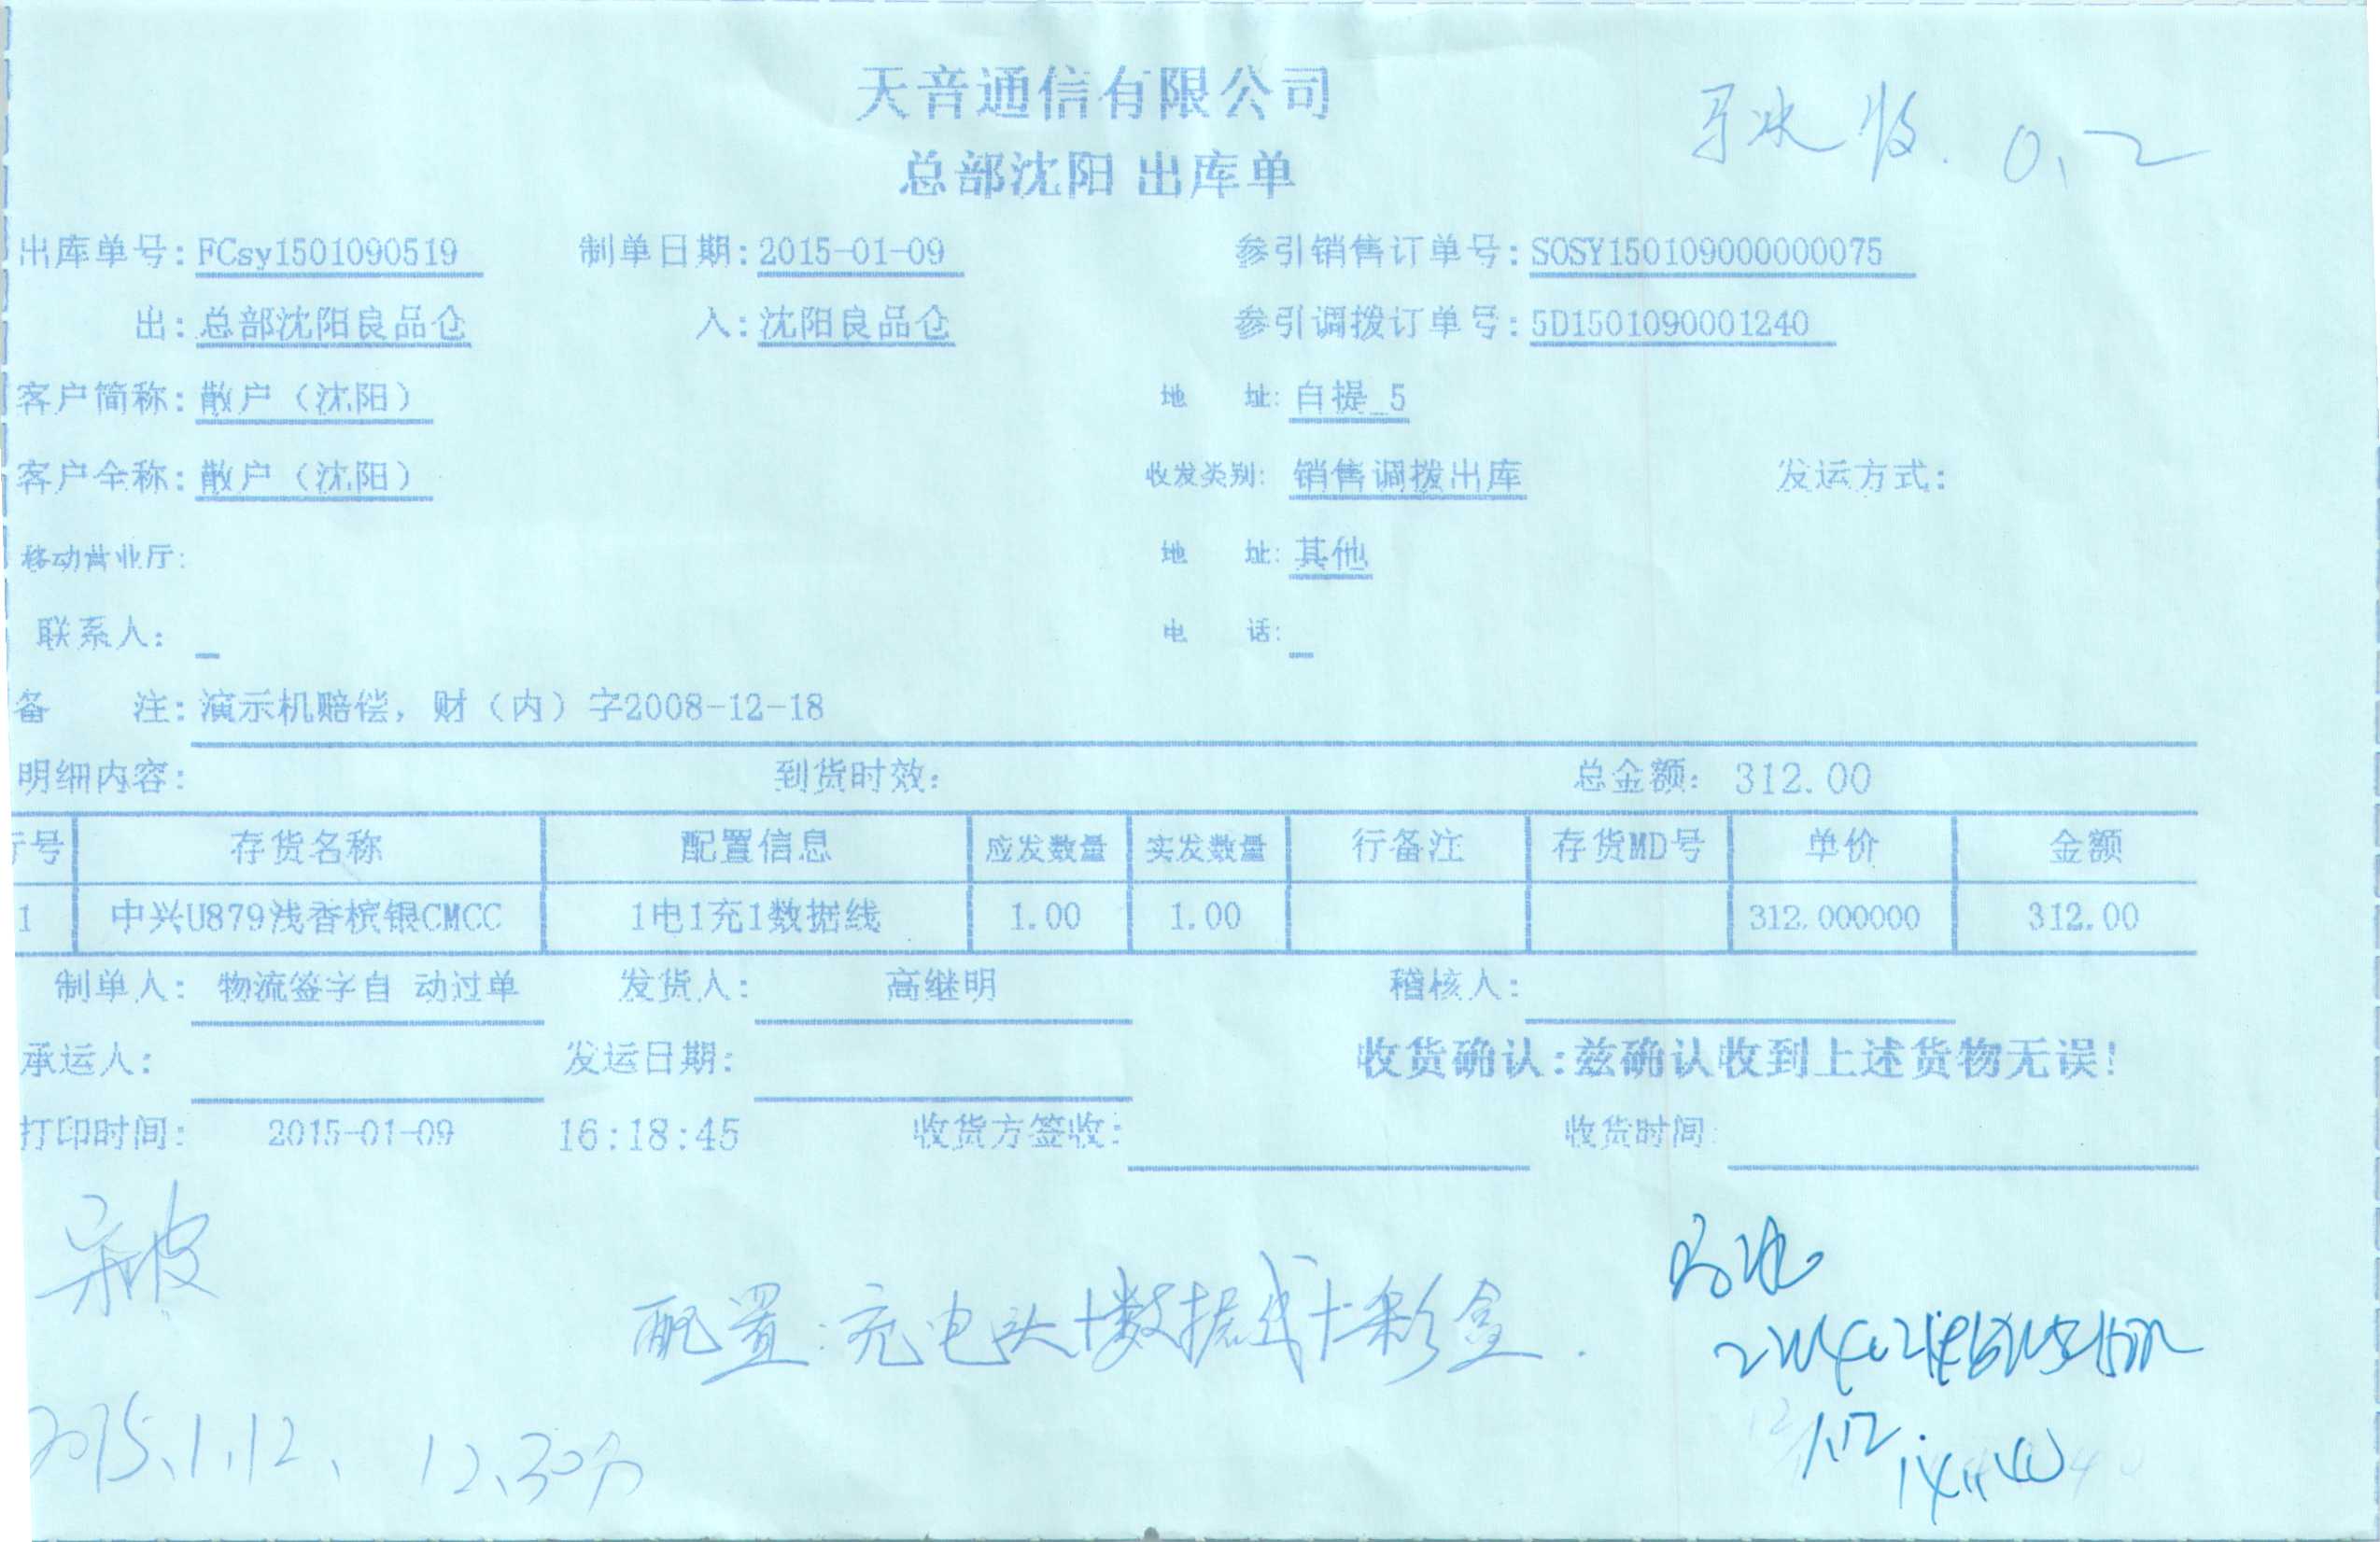 天音通信有限公司
马冰收. 0.2
总部沈阳 出库单
出库单号: FCsy1501090519 制单日期: 2015-01-09 参引销售订单号: SOSY150109000000075
出: 总部沈阳良品仓 入: 沈阳良品仓 参引调拨订单号: 5D1501090001240
客户简称: 散户（沈阳） 地 址: 自提_5
客户全称: 散户（沈阳） 收发类别: 销售调拨出库 发运方式:
移动营业厅: 地 址: 其他
联系人: 电 话:
备 注: 演示机赔偿, 财（内）字2008-12-18
明细内容: 到货时效: 总金额: 312.00
行号 存货名称 配置信息 应发数量 实发数量 行备注 存货MD号 单价 金额
1 中兴U879浅香槟银CMCC 1电1充1数据线 1.00 1.00 312.000000 312.00
制单人: 物流签字自 动过单 发货人: 高继明 稽核人:
承运人: 发运日期: 收货确认:兹确认收到上述货物无误!
打印时间: 2015-01-09 16:18:45 收货方签收: 收货时间:
配置:充电头+数据线+彩盒.
马冰
2015.1.12. 12.30分
1.12
14:40